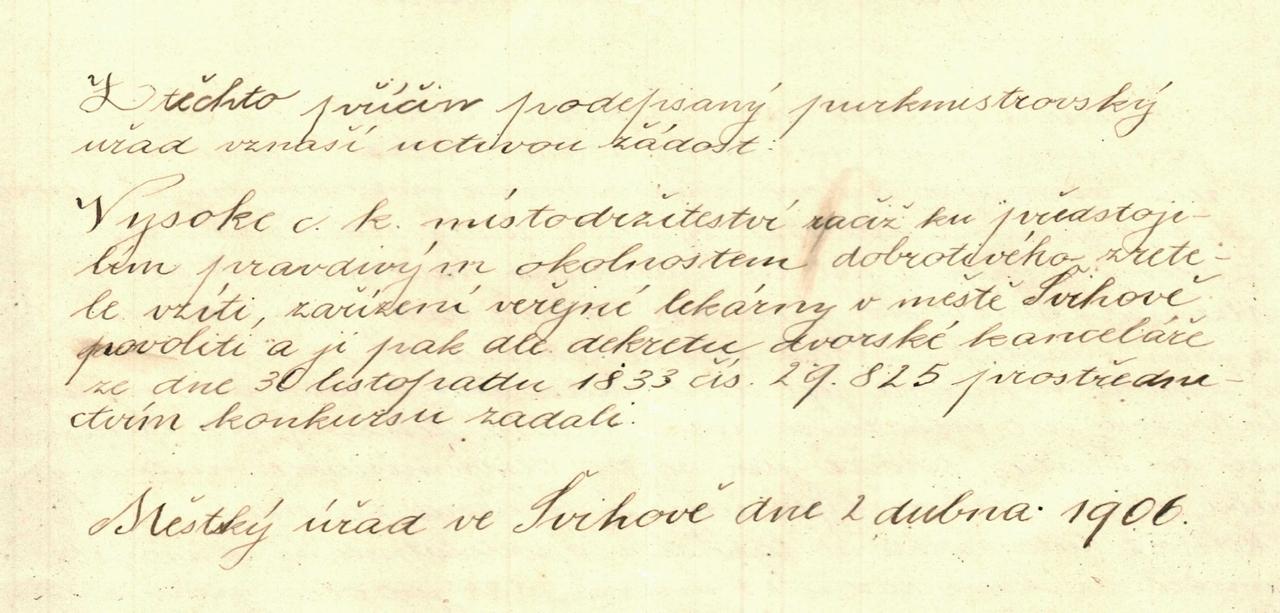 Z těchto příčin podepsaný purkmistrovský
úřad vznaší uctivou žádost:
Vysoké c. k. místodržitelství račiž ku předstoji-
cím pravdivým okolnostem dobrotivého zřete-
le vzíti, zařízení veřejné lekárny v městě Švihově
povoliti a ji pak dle dekretu dvorské kanceláře
ze dne 30 listopadu 1833 čís. 29.825 prostředni-
ctvím konkursu zadali.
Městký úřad ve Švihově dne 2 dubna 1906.